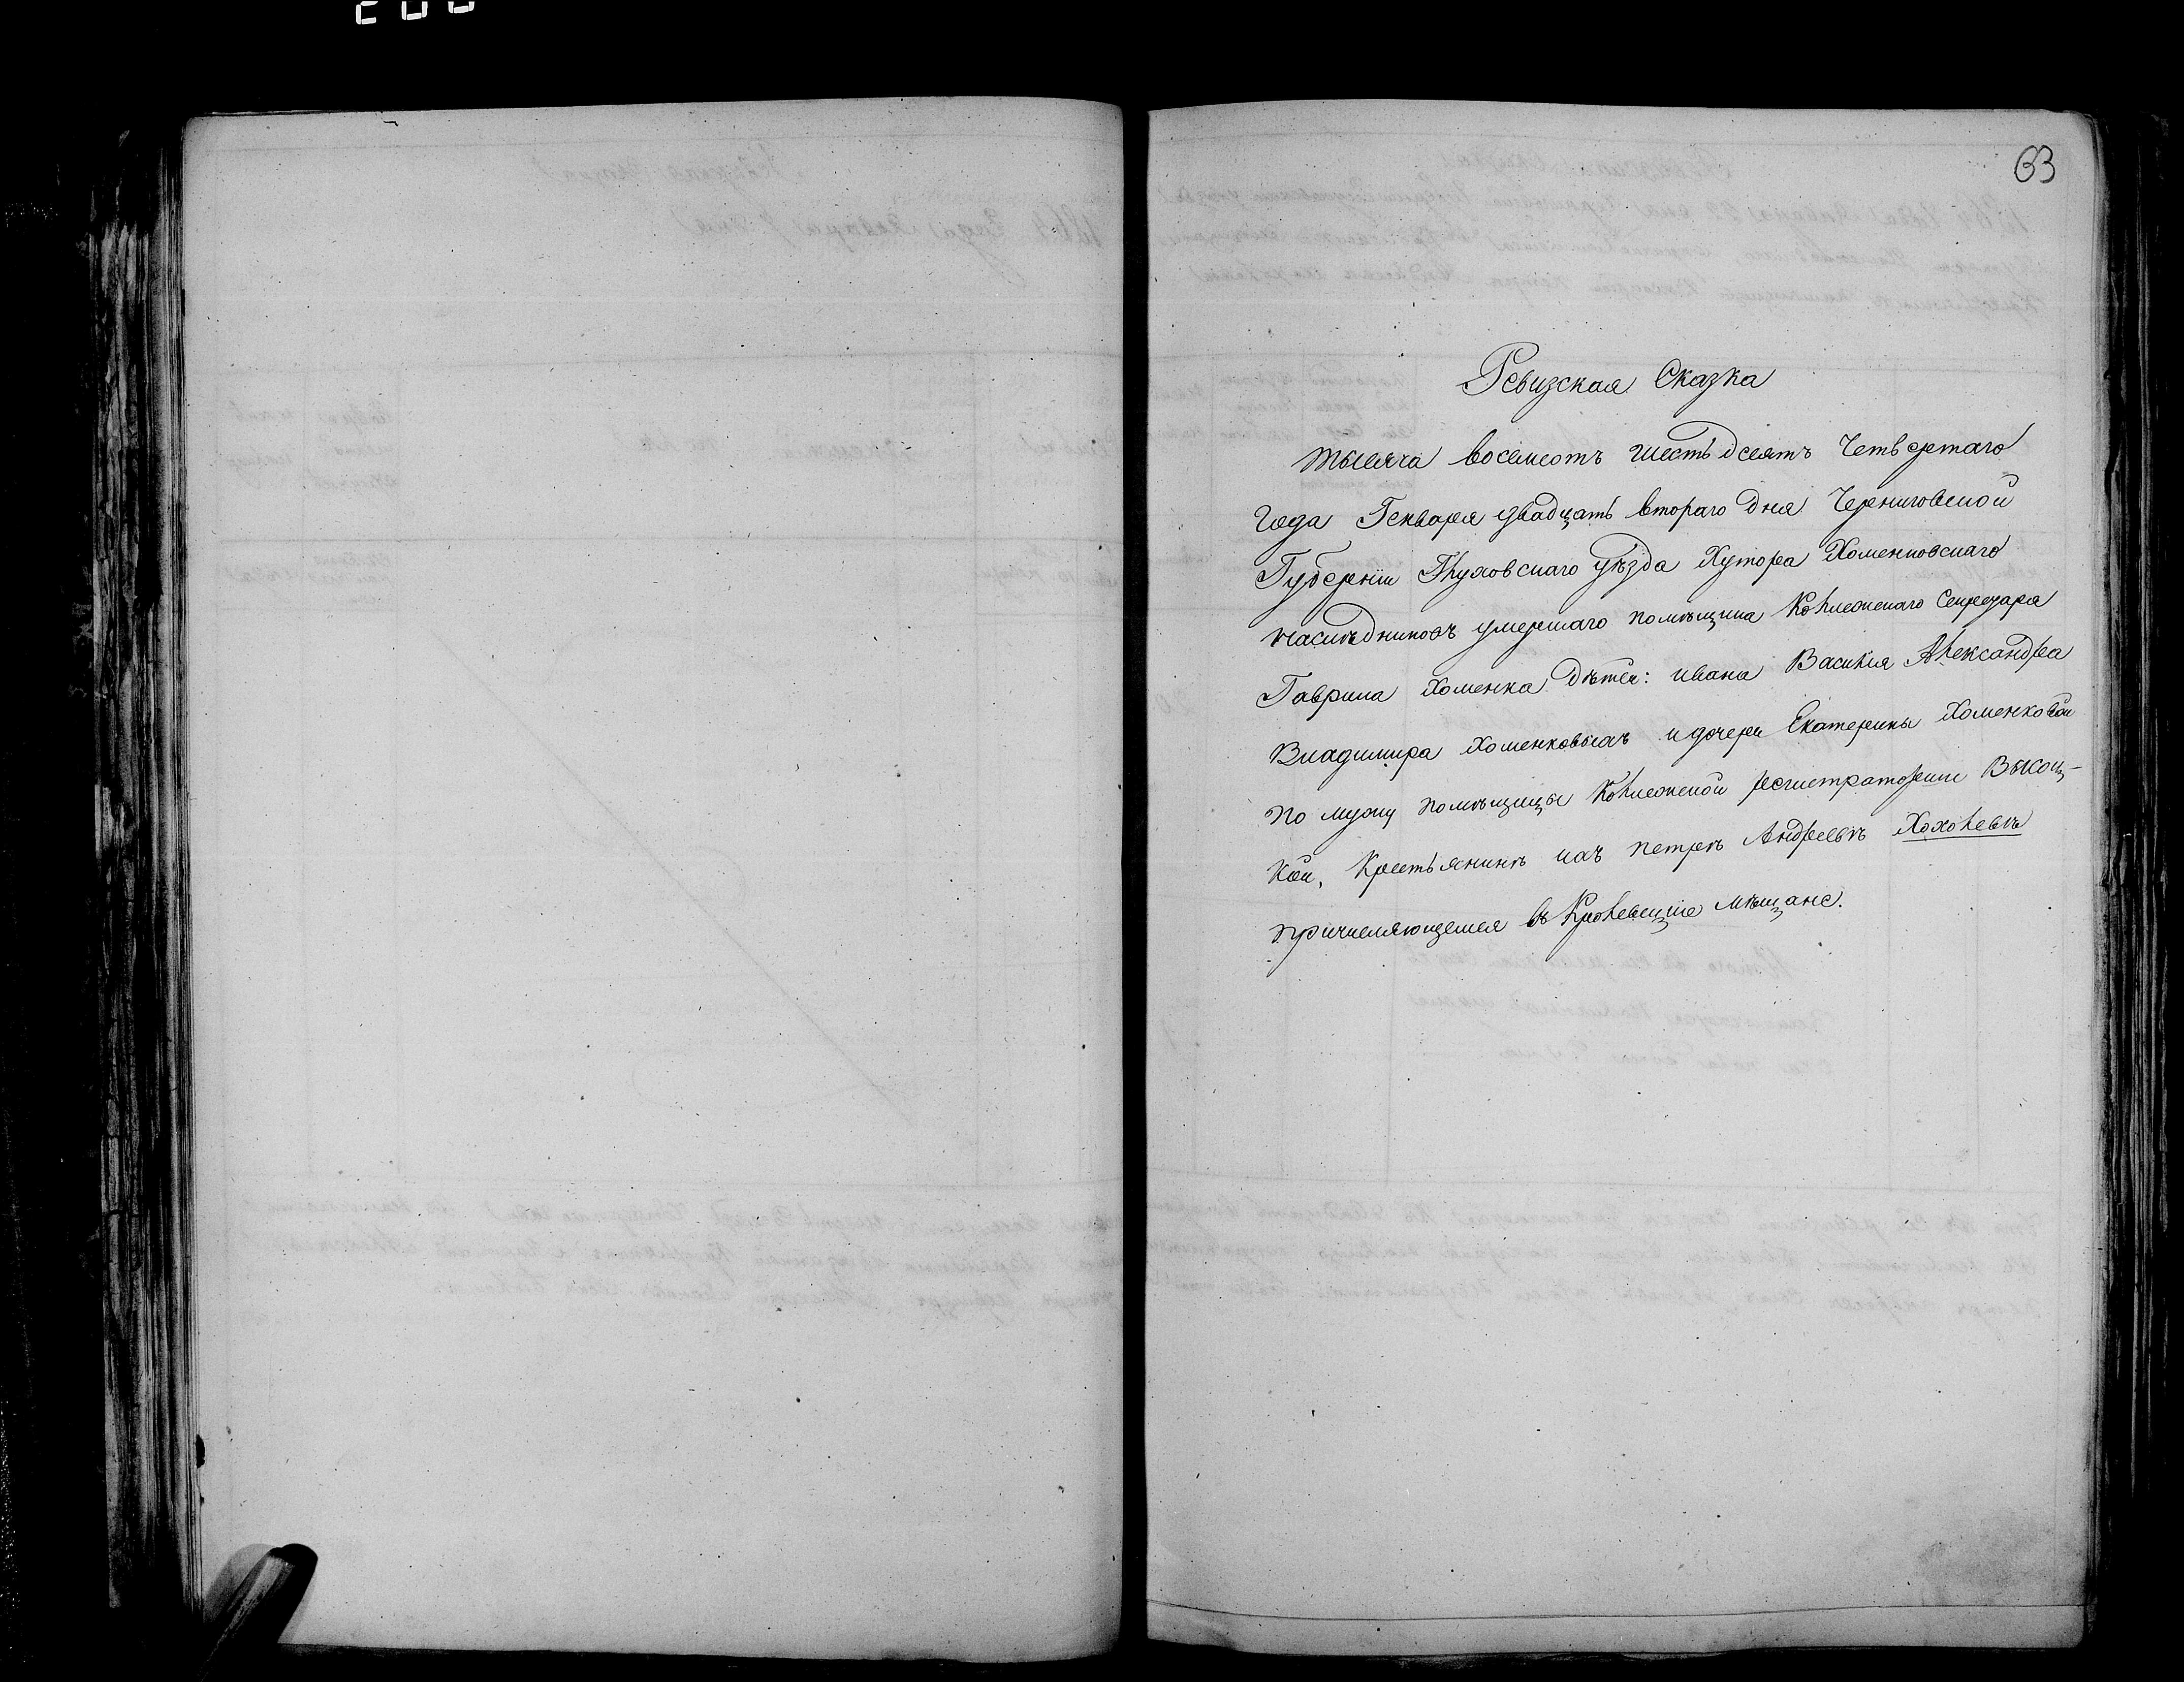 63
Ревизская Сказка
тысяча восемсотъ шестьдсятъ Четвертаго
Года Генваря двадцать втораго дня Черниговской
Губерніи Глуховскаго уѣзда Хутора Хоменковскаго
наслѣдниковъ умершаго помѣщика Коллежскаго Секретаря
Гаврила Хоменка дѣтей: ивана Василія Александра
Владимира Хоменковыхъ и дочери Екатерины Хоменковой
по мужу помѣщицы Коллежской регистраторши Высоц-
кой, Крестьянинѣ ихъ петрѣ Андреевѣ Хохолевѣ
причисляющемся въ Кролевецкіе мѣщане.